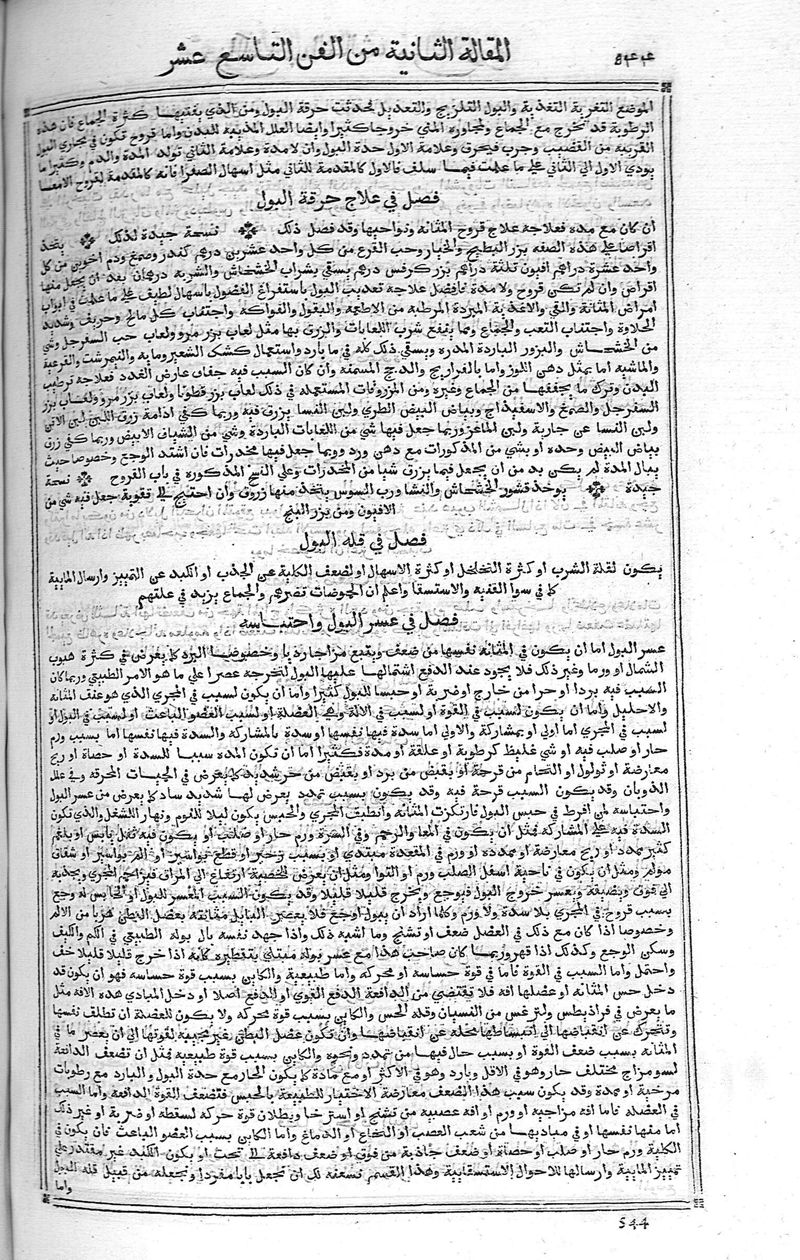 المقالة الثانية من الفن التاسع عشر
٥٤٤
الموضع التغرية التغذية والبول التلزيج والتعديل تحدثت حرقة البول ومن الذي يفنيها كثرة الجماع فان هذه
الرطوبة قد تخرج مع الجماع ومجاوره المني خروجا كثيرا وايضا العلل المذيبة للبدن واما قروح تكون في مجاري البول
القريبه من القضيب وجرب فيحرق وعلامة الاول حدة البول وان لا مدة وعلامة الثاني تولد المدة والدم وكثيرا ما
يودي الاول الي الثاني علي ما علمت فيما سلف فالاول كالمقدمة للثاني مثل اسهال الصفرا فانه كالمقدمة لقروح الامعا
فصل في علاج حرقة البول
ان كان مع مده فعلاجه علاج قروح المثانه ونواحيها وقد فصل ذلك نسحة جيدة لذلك يتخذ
اقراصا علي هذه الصفه بزر البطيح والخيار وحب القرع من كل واحد عشرين درهم كندر وصمغ ودم اخوين من كل
واحد عشرة دراهم افيون ثلثة دراهم بزر كرفس درهم يسقي بشراب الخشخاش والشربه درهمان بعد ان يجعل منها
اقراص وان لم تكن قروح ولا مدة فافضل علاجه تعذيب البول باستفراغ الفضول باسهال لطيف علي ما علمت في ابواب
امراض المثانة والقي والاغذية المبردة المرطبه من الاطعمه والبقول والفواكه واجتناب كل مالح وحريف وشديد
الحلاوة واجتناب التعب والجماع ومما ينفع شرب اللعابات والزرق بها مثل لعاب بزر مرو ولعاب حب السفرجل وشي
من الخشخاش والبزور الباردة المدره ويسقي ذلك كله في ما بارد واستعمال كشك الشعير ومايه والنيمرشت والقرعية
والماشيه اما بمثل دهن اللوز واما بالفراريج والدجج المسمنه وان كان السبب فيه جفاف عارض الغدد فعلاجه ترطيب
البدن وترك ما يجففها من الجماع وغيره ومن المزروقات المستعمله في ذلك لعاب بزر قطونا ولعاب بزر مرو ولعاب بزر
السفرجل والصمغ والاسفيذاج وبياض البيض الطري ولبن النسا يزرق فيه وربما كفي ادامة زرق اللبن لبن الاتن
ولبن النسا عن جارية ولبن الماعز وربما جعل فيها شي من اللعابات الباردة وشي من الشياف الابيض وربما كفي زرق
بياض البيض وحده او بشي من المذكورات مع دهن ورد وربما جعل فيها مخدرات فان اشتد الوجع وخصوصا حيث
يبال المدة لم يكن بد من ان يجعل فيما يزرق شيا من المخدرات وعلي النسخ المذكوره في باب القروح نسحة
جيدة يوخذ قشور الخشخاش والنشا ورب السوس يتخذ منها زروق وان احتيج الي تقوية جعل فيه شي من
الافيون ومن بزر البنج
فصل في قله البول
يكون لقلة الشرب او كثرة التخلخل او كثرة الاسهال او لضعف الكلية عن الجذب او الكبد عن التمييز وارسال المايية
كما في سوا القنيه والاستسقا واعلم ان الحموضات تضرهم والجماع يزيد في علتهم
فصل في عسر البول واحتباسه
عسر البول اما ان يكون في المثانه نفسها من ضعف ويتبع مزاجا رديا وخصوصا البرد كما يعرض في كثرة هبوب
الشمال او ورما وغير ذلك فلا يجود عند الدفع اشتمالها عليها البول لتخرجه عصرا علي ما هو الامر الطبيعي وربما كان
السبب فيه بردا او حرا من خارج او ضربة او حبسا للبول كثيرا واما ان يكون لسبب في المجري الذي هو عنق المثانه
والاحليل واما ان يكون لسبب في القوة او لسبب في الالة وهي العضلة او لسبب العضو الباعث او لسبب في البول او
لسبب في المجري اما اولي او بمشاركة والاولي اما سدة فيها نفسها او سدة بالمشاركه والسدة فيها نفسها اما بسبب ورم
حار او صلب فيه او شي غليظ كرطوبة او علقة او مدة فكثيرا اما ان تكون المده سببا للسدة او حصاة او ريح
معارضة او ثولول او التحام من قرحة او تقبض من برد او تقبض من حر شديد كما يعرض في الحميات المحرقه وفي علل
الذوبان وقد يكون السبب قرحة فيه وقد يكون بسبب تمدد يعرض لها شديد ساد كما يعرض من عسر البول
واحتباسه لمن افرط في حبس البول فارتكزت المثانه وانطبق المجري والحبس يكون ليلا للنوم ونهارا للشغل والذي تكون
السدة فيه علي المشاركه فمثل ان يكون في المعا والرحم وفي السرة ورم حار او صلب او يكون فيه ثفل يابس او بلغم
كثير ممدد او ريح معارضة او ممدده او ورم في المقعدة مبتدي او بسبب زحير او قطع بواسير او الم بواسير او شقاق
مولم ومثل ان يكون في ناحية اسفل الصلب ورم او التوا ومثل ان يعرض للخصية ارتفاع الي المراق فيزاحم المجري ويجذبه
الي فوق ويضيقه ويعسر خروج البول فيوجع ويخرج قليلا قليلا وقد يكون السبب المعسر للبول او الحابس له وجع
بسبب قروح في المجري بلا سدة ولا ورم وكلما اراد ان يبول اوجع فلا يعصر البايل مثانته بعضل البطن هربا من الالم
وخصوصا اذا كان مع ذلك في العضل ضعف او تشنج وما اشبه ذلك واذا جهد نفسه بال بوله الطبيعي في الكم والكيف
وسكن الوجع وكذلك اذا قهر وربما كان صاحب هذا مع عسر بوله مبتلي بتقطيره كانه اذا خرج قليلا قليلا خف
واحتمل واما السبب في القوة فاما في قوة حساسه او محركه واما طبيعية والكاين بسبب قوة حساسه فهو ان يكون قد
دخل حس المثانه او عضلها افه فلا تقتضي من الدافعة الدفع القوي او الدفع اصلا او دخل المبادي هذه الافه مثل
ما يعرض في قرانيطس وليثرغس من النسيان وقله الحس والكاين بسبب قوة محركه ولا يكون للعضلة ان تطلق نفسها
وتتحرك عن انقباضها الي انبساطها مخله عن انقباضها وان تكون عضل البطن غير مجيبة لقوتها الي ان يعصر ما في
المثانه بسبب ضعف القوة او بسبب حال فيها من تمدد ونحوه والكاين بسبب قوة طبيعيه مثل ان تضعف الدافعة
لسو مزاج مختلف حار وهو في الاقل وبارد وهو في الاكثر او مع مادة كما يكون الحار مع حدة البول والبارد مع رطوبات
مرخية او ممده وقد يكون سبب هذا الضعف معارضة الاختيار للطبيعة بالحبس فتضعف القوة الدافعة واما السبب
في العضله فاما افه مزاجيه او ورم او افه عصبيه من تشنج او استرخا وبطلان قوة حركه لسقطه او ضربة او غير ذلك
اما منها نفسها او في مباديها من شعب العصب او النخاع او الدماغ واما الكاين بسبب العضو الباعث فان يكون في
الكلية ورم حار او صلب او حصاة او ضعف جاذبة من فوق او ضعف دافعة الي تحت او يكون الكبد غير مقتدر علي
تمييز المايية وارسالها للاحوال الاستسقايية وهذا القسم نسعفه لك ان تجعل بابا مفردا وتجعله من قبيل قله البول
واما
544